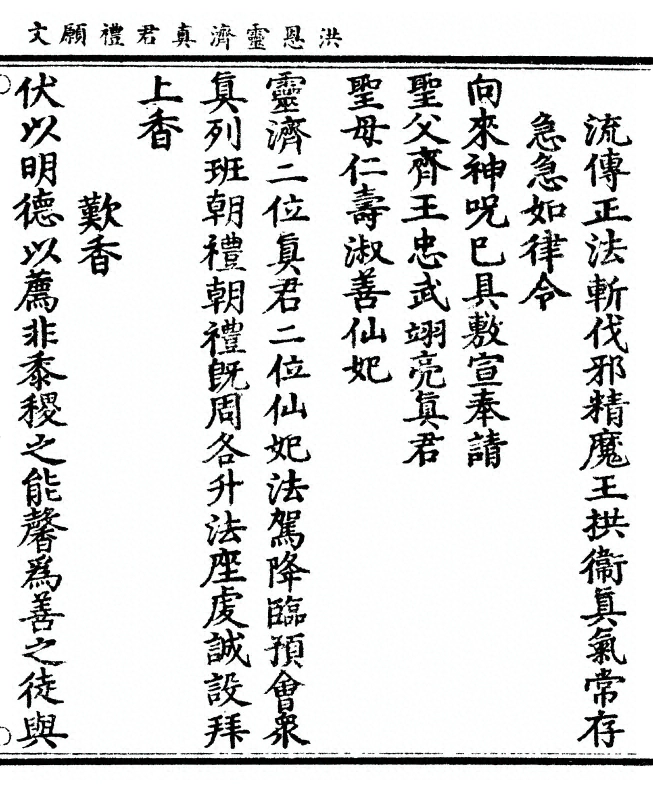 洪恩靈濟真君禮願文
流傳正法斬伐邪精魔王拱衞眞氣常存
急急如律令
向來神呪巳具敷宣奉請
聖父齊王忠武翊亮眞君
聖母仁壽淑善仙妃
靈濟二位眞君二位仙妃法駕降臨預會衆
眞列班朝禮朝禮旣周各升法座虔誠設拜
上香
歎香
伏以明德以薦非黍稷之能馨爲善之徒與